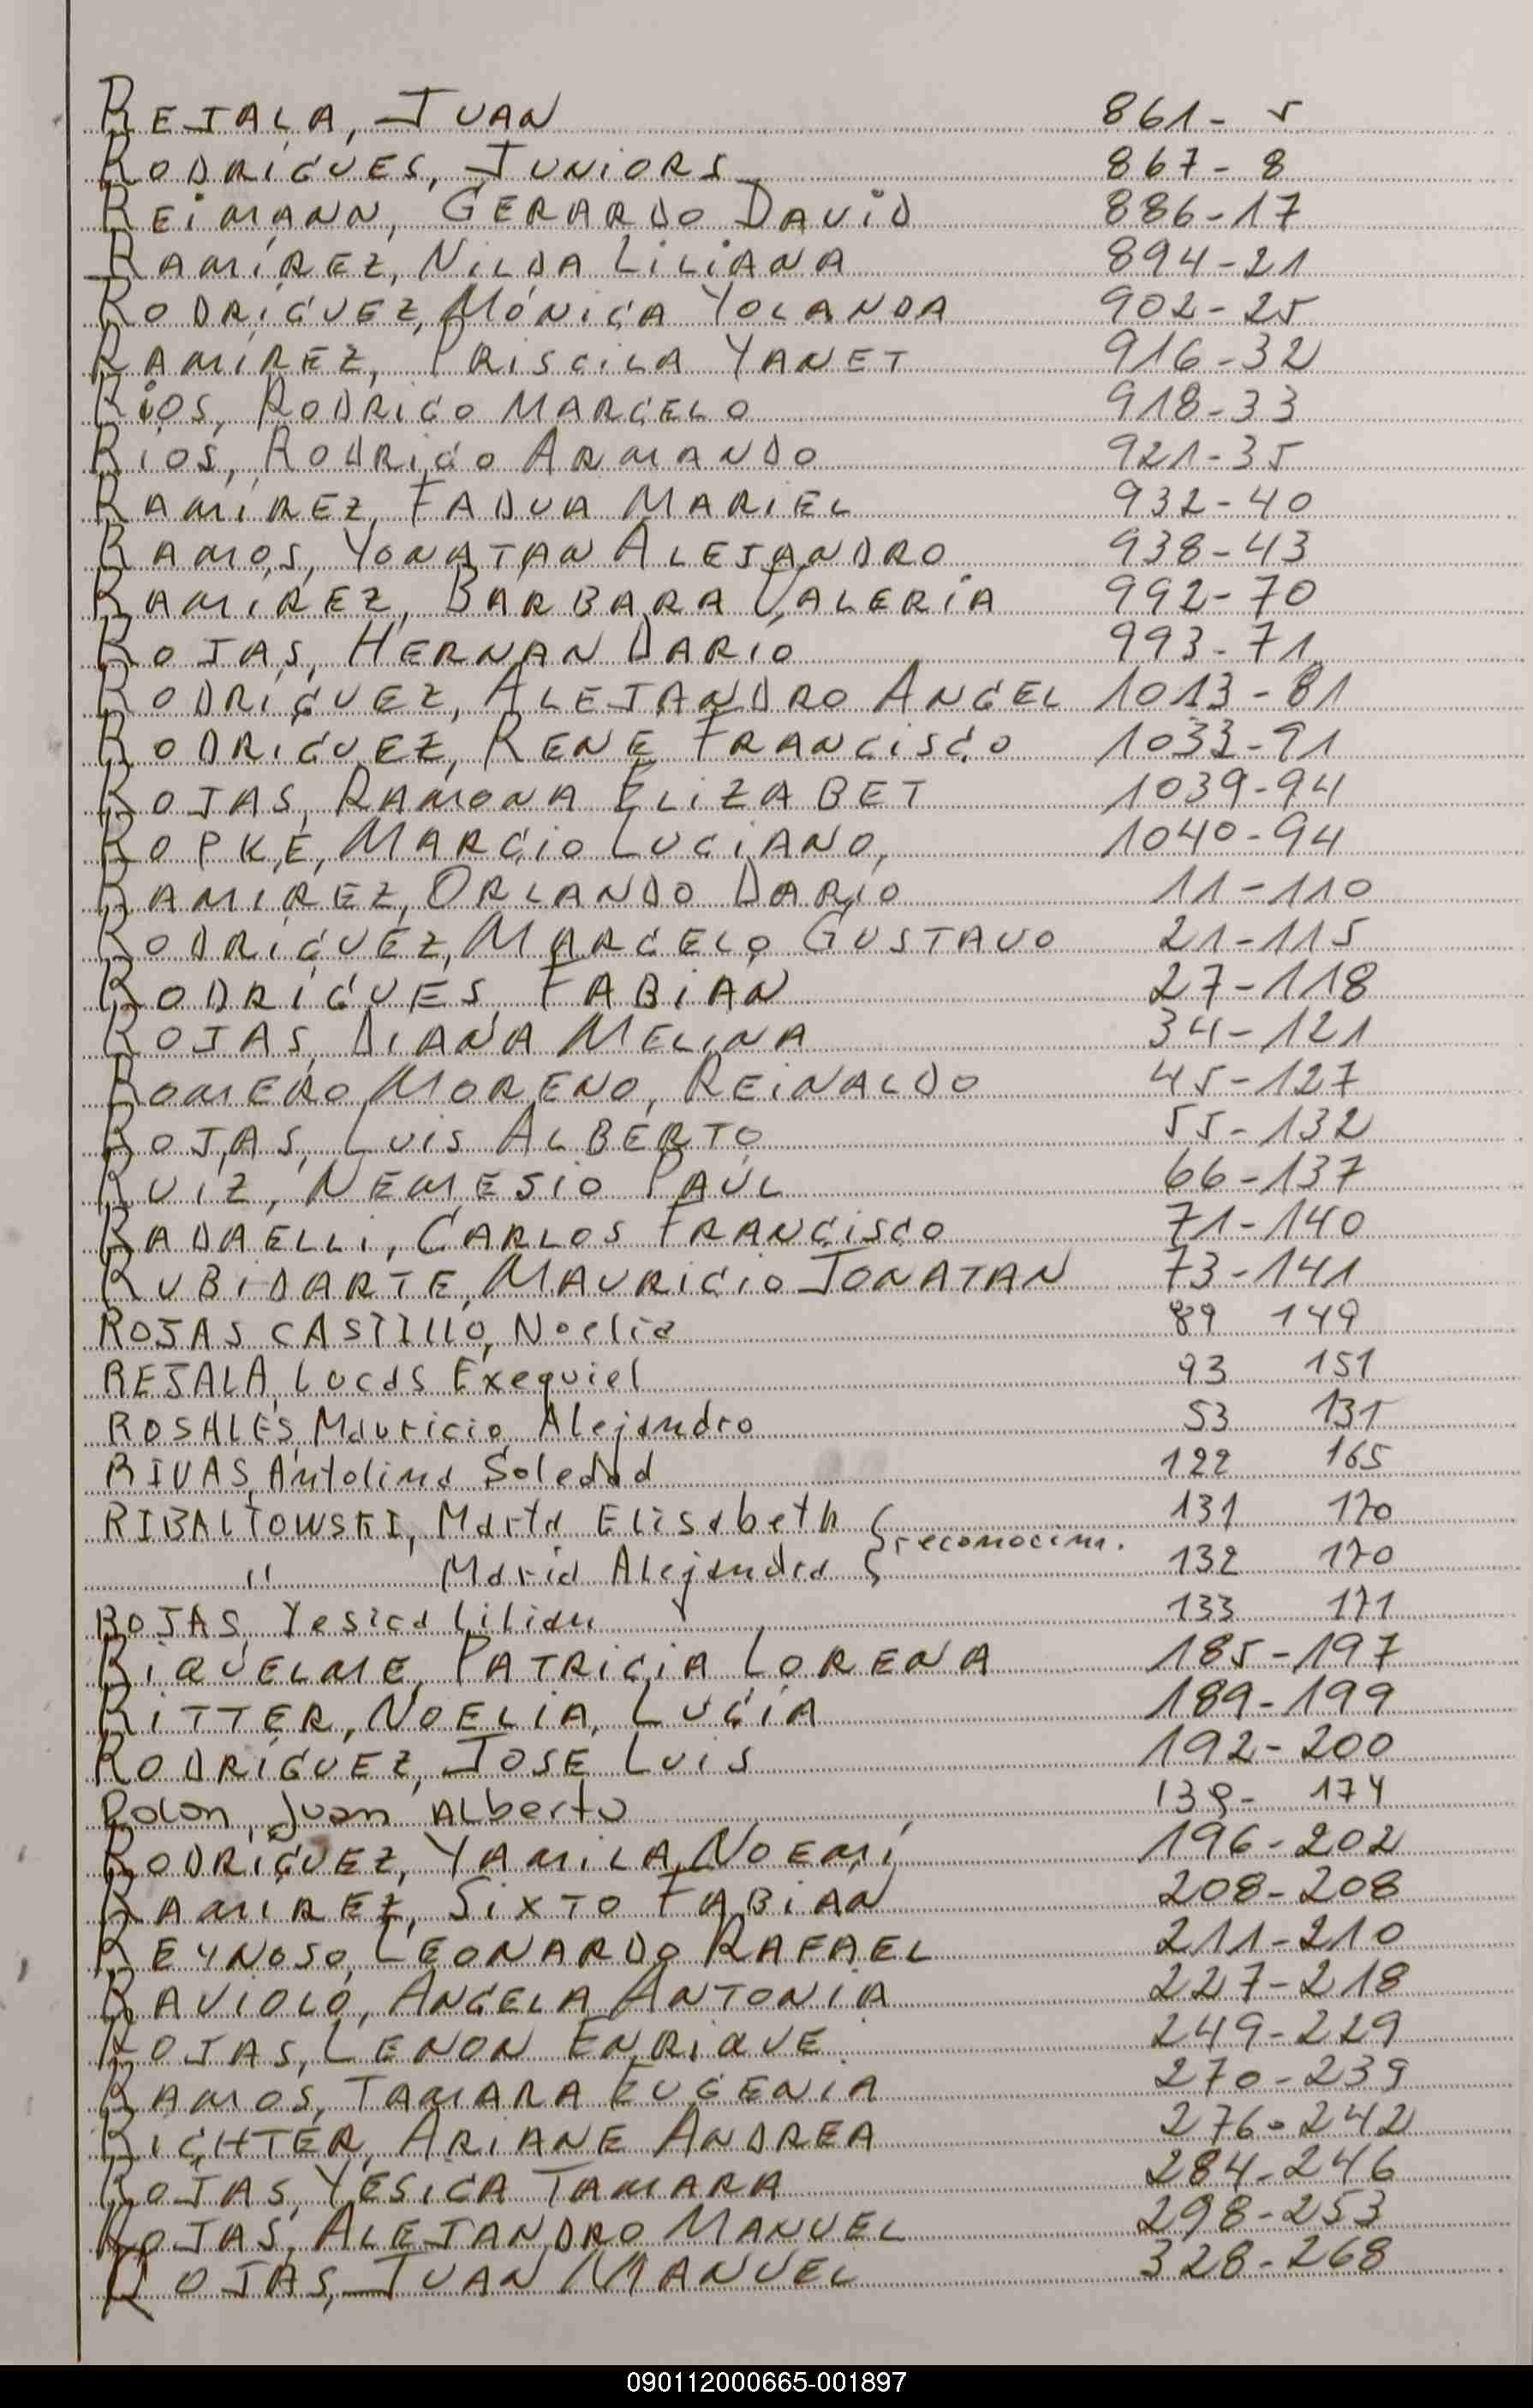 REJALA, JUAN 861- 5
RODRÍGUES, JUNIORS 867- 8
REIMANN, GERARDO DAVID 886-17
RAMÍREZ, NILDA LILIANA 894-21
RODRÍGUEZ, MÓNICA YOLANDA 902-25
RAMÍREZ, PRISCILA YANET 916-32
RÍOS, RODRIGO MARCELO 918-33
RÍOS, RODRIGO ARMANDO 921-35
RAMÍREZ, FADUA MARIEL 932-40
RAMOS, YONATAN ALEJANDRO 938-43
RAMÍREZ, BÁRBARA VALERIA 992-70
ROJAS, HERNAN DARÍO 993-71
RODRÍGUEZ, ALEJANDRO ANGEL 1013-81
RODRIGUEZ, RENE FRANCISCO 1033-91
ROJAS, RAMONA ELIZABET 1039-94
ROPKE, MARCIO LUCIANO, 1040-94
RAMIREZ, ORLANDO DARÍO 11-110
RODRÍGUEZ, MARCELO GUSTAVO 21-115
RODRÍGUES, FABIÁN 27-118
ROJAS, DIANA MELINA 34-121
ROMERO MORENO, REINALDO 45-127
ROJAS, LUIS ALBERTO 55-132
RUIZ, NEMESIO PAÚL 66-137
RADAELLI, CARLOS FRANCISCO 71-140
RUBIDARTE, MAURICIO JONATAN 73-141
ROJAS CASTILLO, Noelia 89 149
REJALA, Lucas Exequiel 93 151
ROSALES, Mauricio Alejandro 53 131
RIVAS, Antolina Soledad 122 165
RIBALTOWSKI, Marta Elisabeth { reconocim. 131 170
" María Alejandra { 132 170
ROJAS, Yesica Lilian 133 171
RIQUELME, PATRICIA LORENA 185-197
RITTER, NOELIA LUCÍA 189-199
RODRÍGUEZ, JOSÉ LUIS 192-200
Rolon, Juan Alberto 139- 174
RODRÍGUEZ, YAMILA NOEMÍ 196-202
RAMIREZ, SIXTO FABIÁN 208-208
REYNOSO, LEONARDO RAFAEL 211-210
RAVIOLO, ANGELA ANTONIA 227-218
ROJAS, LENON ENRIQUE. 249-229
RAMOS, TAMARA EUGENIA 270-239
RICHTER, ARIANE ANDREA 276-242
ROJAS, YÉSICA TAMARA 284-246
ROJAS, ALEJANDRO MANUEL 298-253
ROJAS, JUAN MANUEL 328-268
090112000665-001897